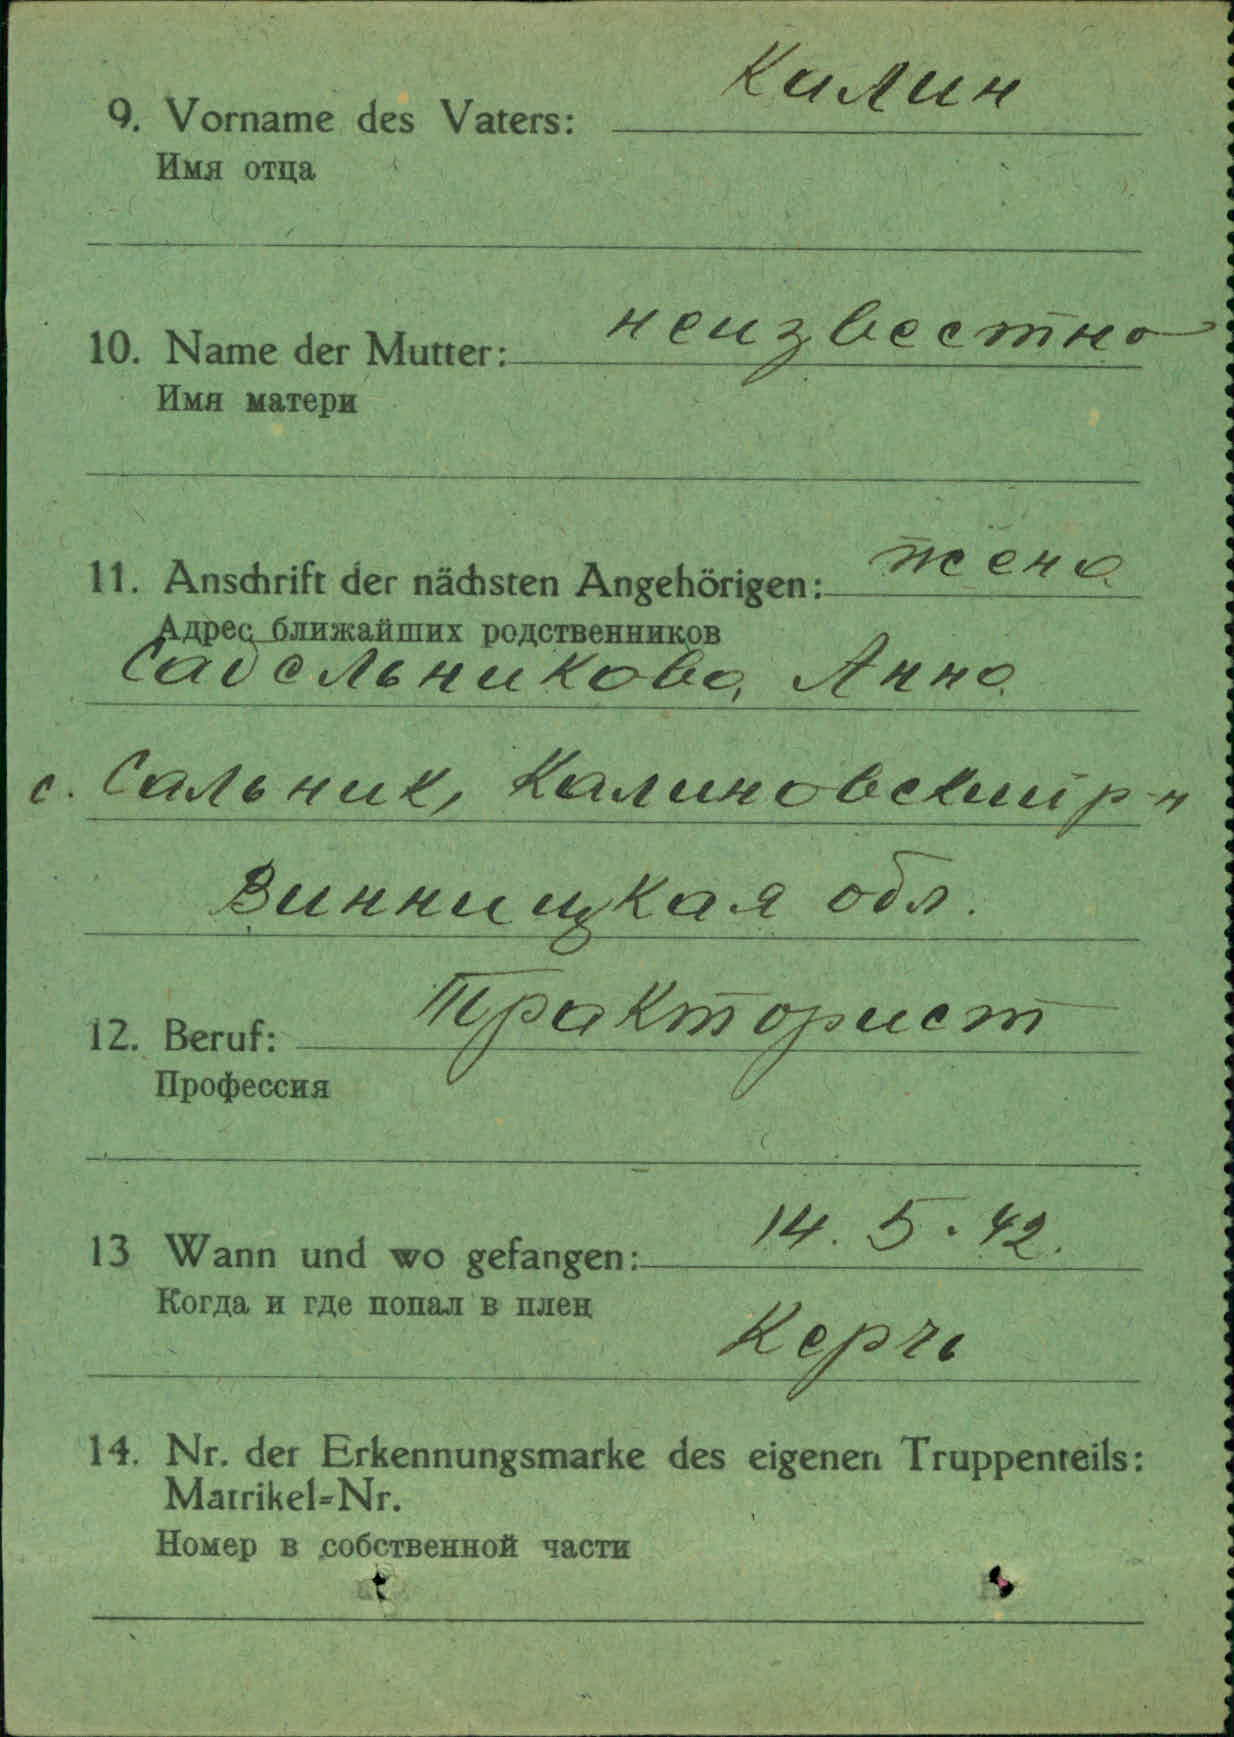 Калин
9. Vorname des Vaters:
Имя отца
неизвестно
10. Name der Mutter:
Имя матери
жена
11. Anschrift der nächsten Angehörigen:
Адрес ближайших родственников
Савельникова, Анна
с. Сальник, Калиновский р-н
Винницкая обл.
Тракторист
12. Beruf:
Профессия
14. 5. 42.
13 Wann und wo gefangen:
Когда и где попал в плен
Керчь
14. Nr. der Erkennungsmarke des eigenen Truppenteils:
Matrikel=Nr.
Номер в собственной части